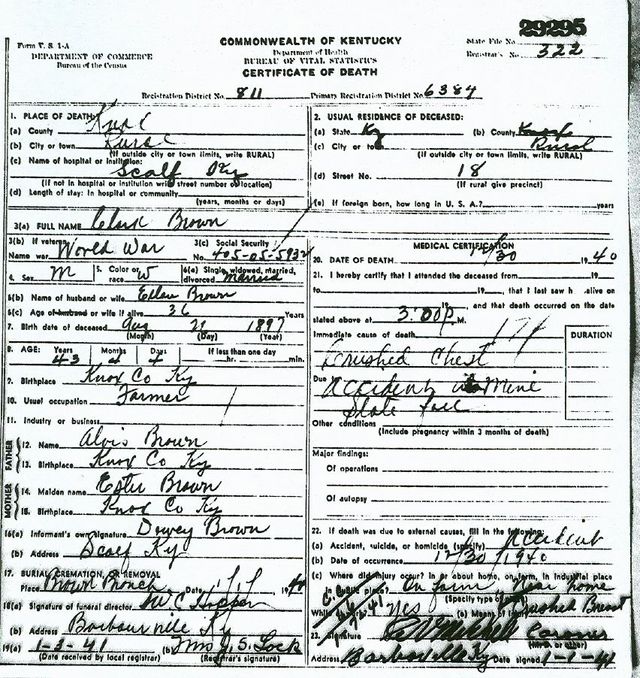 29295
Form V. S. 1-A
DEPARTMENT OF COMMERCE
Bureau of the Census
COMMONWEALTH OF KENTUCKY
Department of Health
BUREAU OF VITAL STATISTICS
CERTIFICATE OF DEATH
State File No.
Registrar's No. 322
Registration District No. 811 Primary Registration District No. 6384
1. PLACE OF DEATH:
(a) County Knox
(b) City or town Rural
(If outside city or town limits, write RURAL)
(c) Name of hospital or institution:
Scalf Ky
(If not in hospital or institution write street number or location)
(d) Length of stay: In hospital or community
(years, months or days)
2. USUAL RESIDENCE OF DECEASED:
(a) State Ky (b) County Knox
(c) City or Rural
(If outside city or town limits, write RURAL)
(d) Street No. 18
(If rural give precinct)
(e) If foreign born, how long in U. S. A.? years
3(a) FULL NAME Clark Brown
3(b) If veteran
Name war World War
3(c) Social Security
No. 405-05-5932
4. Sex M 5. Color or race W 6(a) Single, widowed, married, divorced Married
6(b) Name of husband or wife Brown
6(c) Age of husband or wife if alive 36 Years
7. Birth date of deceased Aug 21 1897
(Month) (Day) (Year)
8. AGE: Years Months Days If less than one day
43 4 hr. min.
9. Birthplace Knox Co Ky
10. Usual occupation Farmer
11. Industry or business
FATHER
12. Name Alvis Brown
13. Birthplace Knox Co Ky
MOTHER
14. Maiden name Ester Brown
15. Birthplace Knox Co Ky
16(a) Informant's own signature Dewey Brown
(b) Address Scalf Ky
17. BURIAL, CREMATION, OR REMOVAL
Place Brown Branch Date
18(a) Signature of funeral director Hopper
(b) Address Barbourville Ky
19(a) 1-3-41 (b) Mrs J. S. Lock
(Date received by local registrar) (Registrar's signature)
MEDICAL CERTIFICATION
20. DATE OF DEATH 30, 1940
21. I hereby certify that I attended the deceased from 19
to 19 , that I last saw h alive on
19 , and that death occurred on the date
stated above at 3:00 P M.
Immediate cause of death
DURATION
Crushed Chest
Due Accident in Mine
Slate fall
Other conditions
(Include pregnancy within 3 months of death)
Major findings:
Of operations
Of autopsy
22. If death was due to external causes, fill in the following:
(a) Accident, suicide, or homicide (specify) Accident
(b) Date of occurrence 12/30/1940
(c) Where did injury occur? In or about home, on farm, in industrial place
On farm near home
(Specify type of place)
While yes (e) Means of injury Crushed Breast
23. Signature Mitchell Coroner
(M.D. or other)
Address Barbourville Ky Date signed 1-1-41